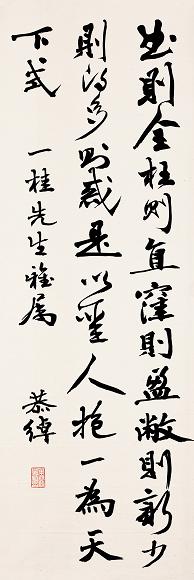 曲則全枉則直窪則盈敝則新少
則得多則惑是以聖人抱一為天
下式
一桂先生雅属
恭绰